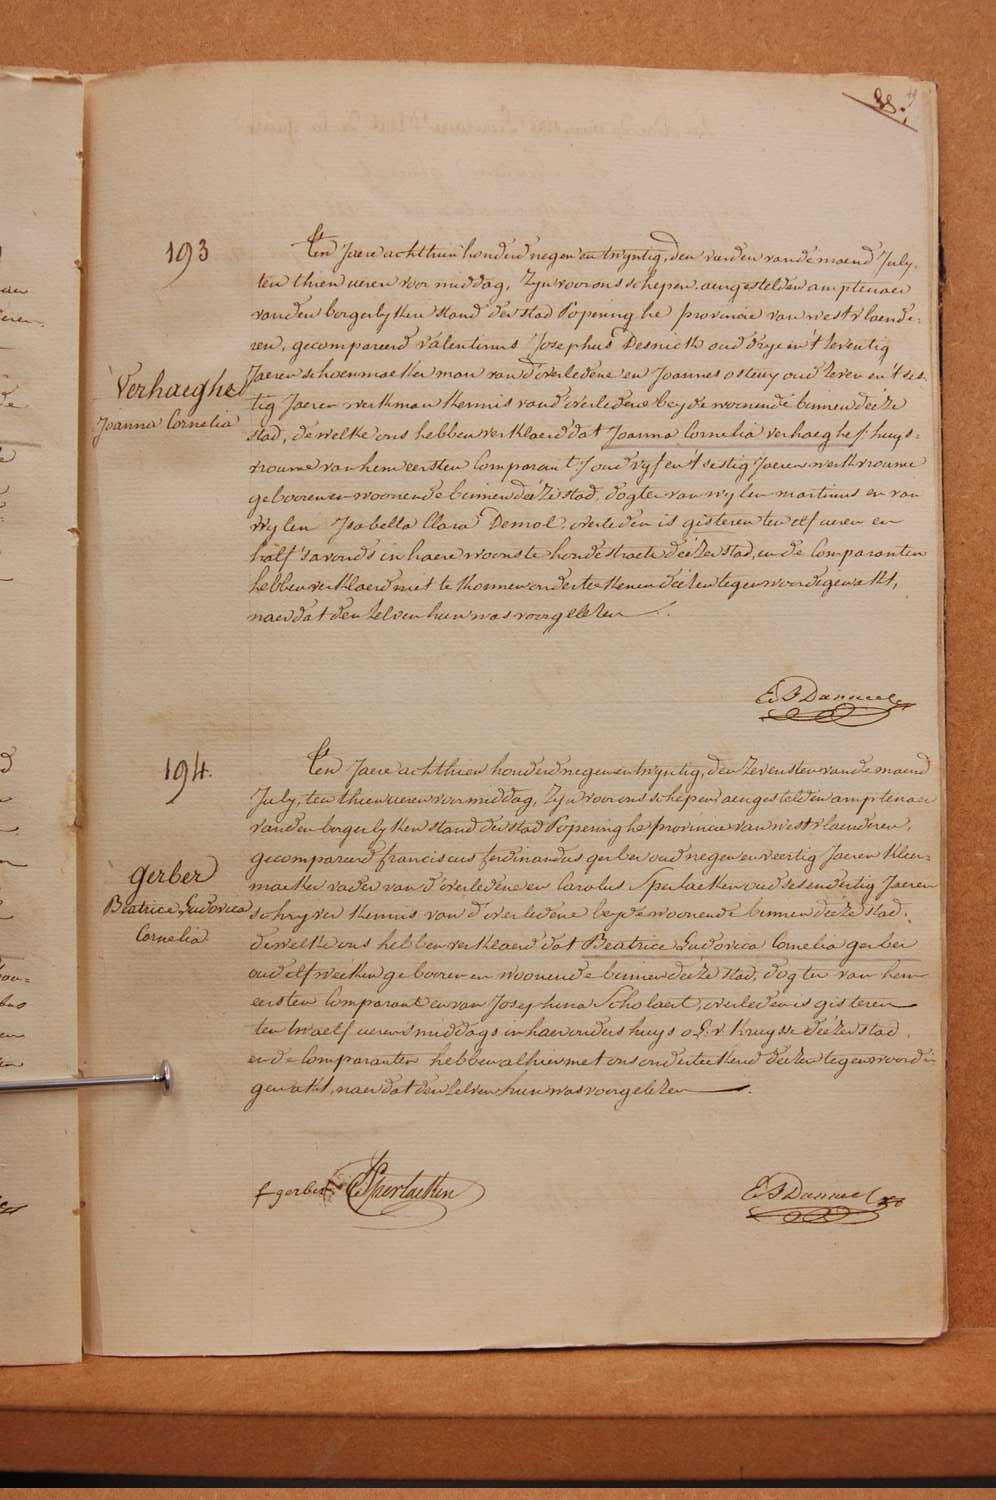 38.
193
Ten Jaere achthien honderd negen en twyntig, den vierden van de maend July,
ten thien ueren voor middag, Zyn voor ons schepen aengestelden amptenaer
van den borgerlyken stand der stad Poperinghe provincie van westvlaende-
ren, gecompareerd valentinus Josephus Desnick oud drye en 't seventig
Verhaeghe
Joanna Cornelia
Jaeren schoenmaeker man van d'overledene en Joannes osteuy oud zeven en 't ses-
tig Jaeren werkman kennis van d'overledene beyde woonende binnen deeze
stad, de welke ons hebben verklaerd dat Joanna Cornelia verhaeghe / huys-
vrouwe van hem eersten Comparant / oud vyf en 't sestig Jaeren werkvrouwe
gebooren en woonende binnen deéze stad, dogter van wylen martinus en van
Wylen Isabella Clara Demol, overleden is gisteren ten elf ueren en
half 's avonds in haere woonste hondestraete deéze stad, en de Comparanten
hebben verklaerd niet te konnen onderteekenen deézen tegenwoordigen akt,
naer dat den zelven hun was voorgelezen
E. J. Danneel
194.
Ten Jaere achthien honderd negen en twyntig, den zevensten van de maend
July, ten thien ueren voormiddag, Zyn voor ons schepen aengestelden amptenaer
van den borgerlyken stand der stad Poperinghe provincie van westvlaenderen,
gecompareerd franciscus ferdinandus gerber oud negen en veertig Jaeren kleer-
gerber
Beatrice Ludovica
Cornelia
maeker vader van d'overledene en Carolus Sperlaeken oud sesendertig Jaeren
schryver kennis van d'overledene beyde woonende binnen deeze stad,
dewelke ons hebben verklaerd dat Beatrice Ludovica Cornelia gerber
oud elf weeken gebooren en woonende binnen deeze stad, dogter van hem
eersten Comparant en van Josephina Scholaert, overleden is gisteren
ten twaelf ueren 's middags in haer ouders huys deéze stad,
en de Comparanten hebben alhier met ons onderteekend deézen tegenwoordi-
gen akt, naer dat den zelven hun was voorgelezen.
f gerber
C Sperlaeken
E. J. Danneel